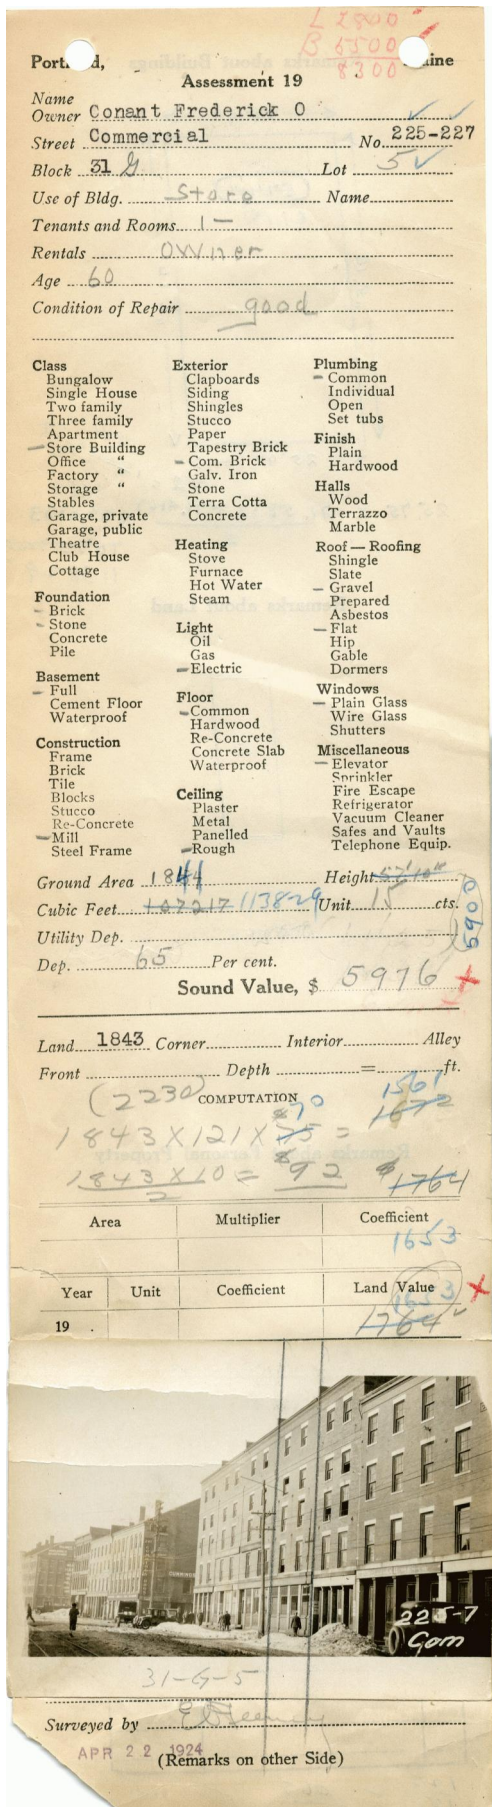 L 2800
B 5500
8300
Portland, Maine
Assessment 19
Name
Owner Conant Frederick O
Street Commercial No. 225-227
Block 31 G Lot 5
Use of Bldg. Store Name
Tenants and Rooms 1 -
Rentals Owner
Age 60
Condition of Repair good
Class
Bungalow
Single House
Two family
Three family
Apartment
Store Building
Office "
Factory "
Storage "
Stables
Garage, private
Garage, public
Theatre
Club House
Cottage
Foundation
Brick
Stone
Concrete
Pile
Basement
Full
Cement Floor
Waterproof
Construction
Frame
Brick
Tile
Blocks
Stucco
Re-Concrete
Mill
Steel Frame
Exterior
Clapboards
Siding
Shingles
Stucco
Paper
Tapestry Brick
Com. Brick
Galv. Iron
Stone
Terra Cotta
Concrete
Heating
Stove
Furnace
Hot Water
Steam
Light
Oil
Gas
Electric
Floor
Common
Hardwood
Re-Concrete
Concrete Slab
Waterproof
Ceiling
Plaster
Metal
Panelled
Rough
Plumbing
Common
Individual
Open
Set tubs
Finish
Plain
Hardwood
Halls
Wood
Terrazzo
Marble
Roof — Roofing
Shingle
Slate
Gravel
Prepared
Asbestos
Flat
Hip
Gable
Dormers
Windows
Plain Glass
Wire Glass
Shutters
Miscellaneous
Elevator
Sprinkler
Fire Escape
Refrigerator
Vacuum Cleaner
Safes and Vaults
Telephone Equip.
Ground Area 1844 Height 57'10"
Cubic Feet 107217 113829 Unit 15 cts.
5900
Utility Dep.
Dep. 65 Per cent.
Sound Value, $ 5976
Land 1843 Corner Interior Alley
Front Depth = ft.
(2230) COMPUTATION 1561
1843 X 121 X $75 70 = 1672
1843 X 10 = $92 $1764
2
Area Multiplier Coefficient
1653
Year Unit Coefficient Land Value
1653
19 . 1764
225-7
Com
31-G-5
Surveyed by
APR 22 1924
(Remarks on other Side)